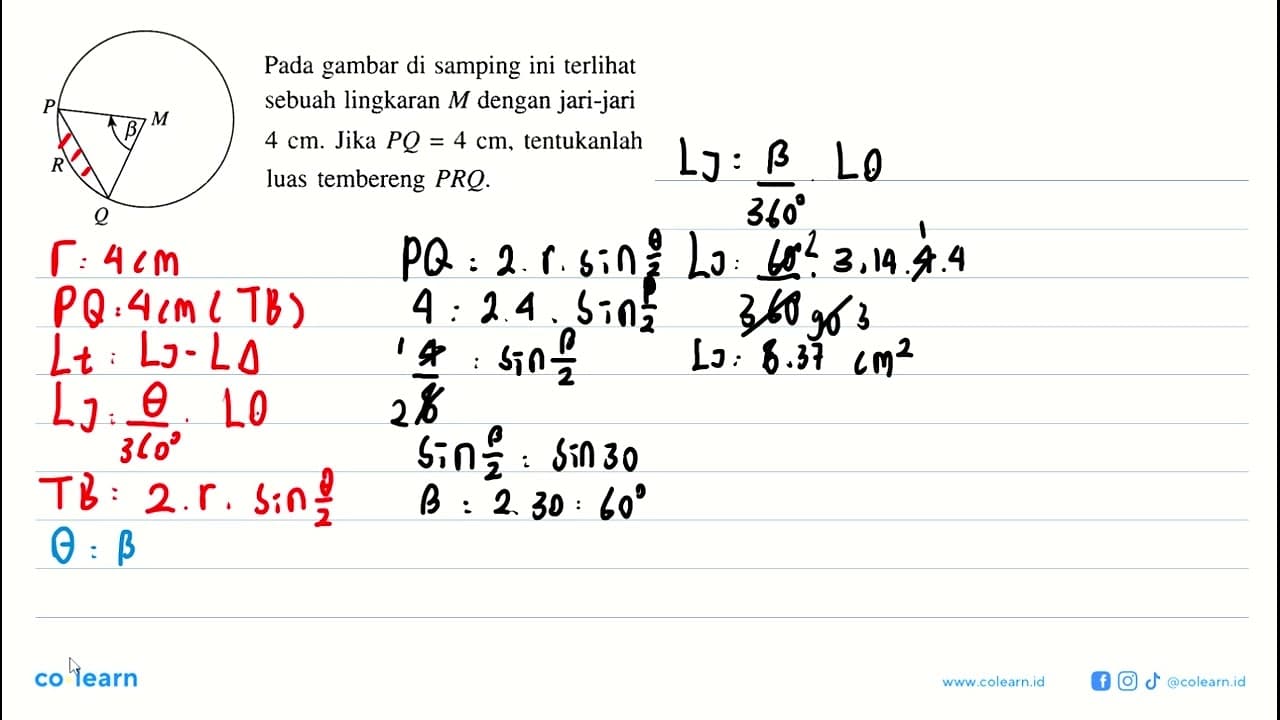 Pada gambar di samping ini terlihat
sebuah lingkaran M dengan jari-jari
4 cm. Jika PQ = 4 cm, tentukanlah
luas tembereng PRQ.
P
β
M
R
Q
r : 4 cm
PQ : 4 cm (TB)
Lt : LJ - LΔ
LJ : θ/360° . LO
TB : 2 . r . sin θ/2
θ : β
PQ : 2 . r . sin θ/2
4 : 2 . 4 . sin β/2
1 4/8 2 : sin β/2
sin β/2 : sin 30
β : 2 . 30 : 60°
LJ : β/360° . LO
LJ : 60² /360 90 3 . 3,14 . 4 1 . 4
LJ : 8.37 cm²
co learn
www.colearn.id
@colearn.id